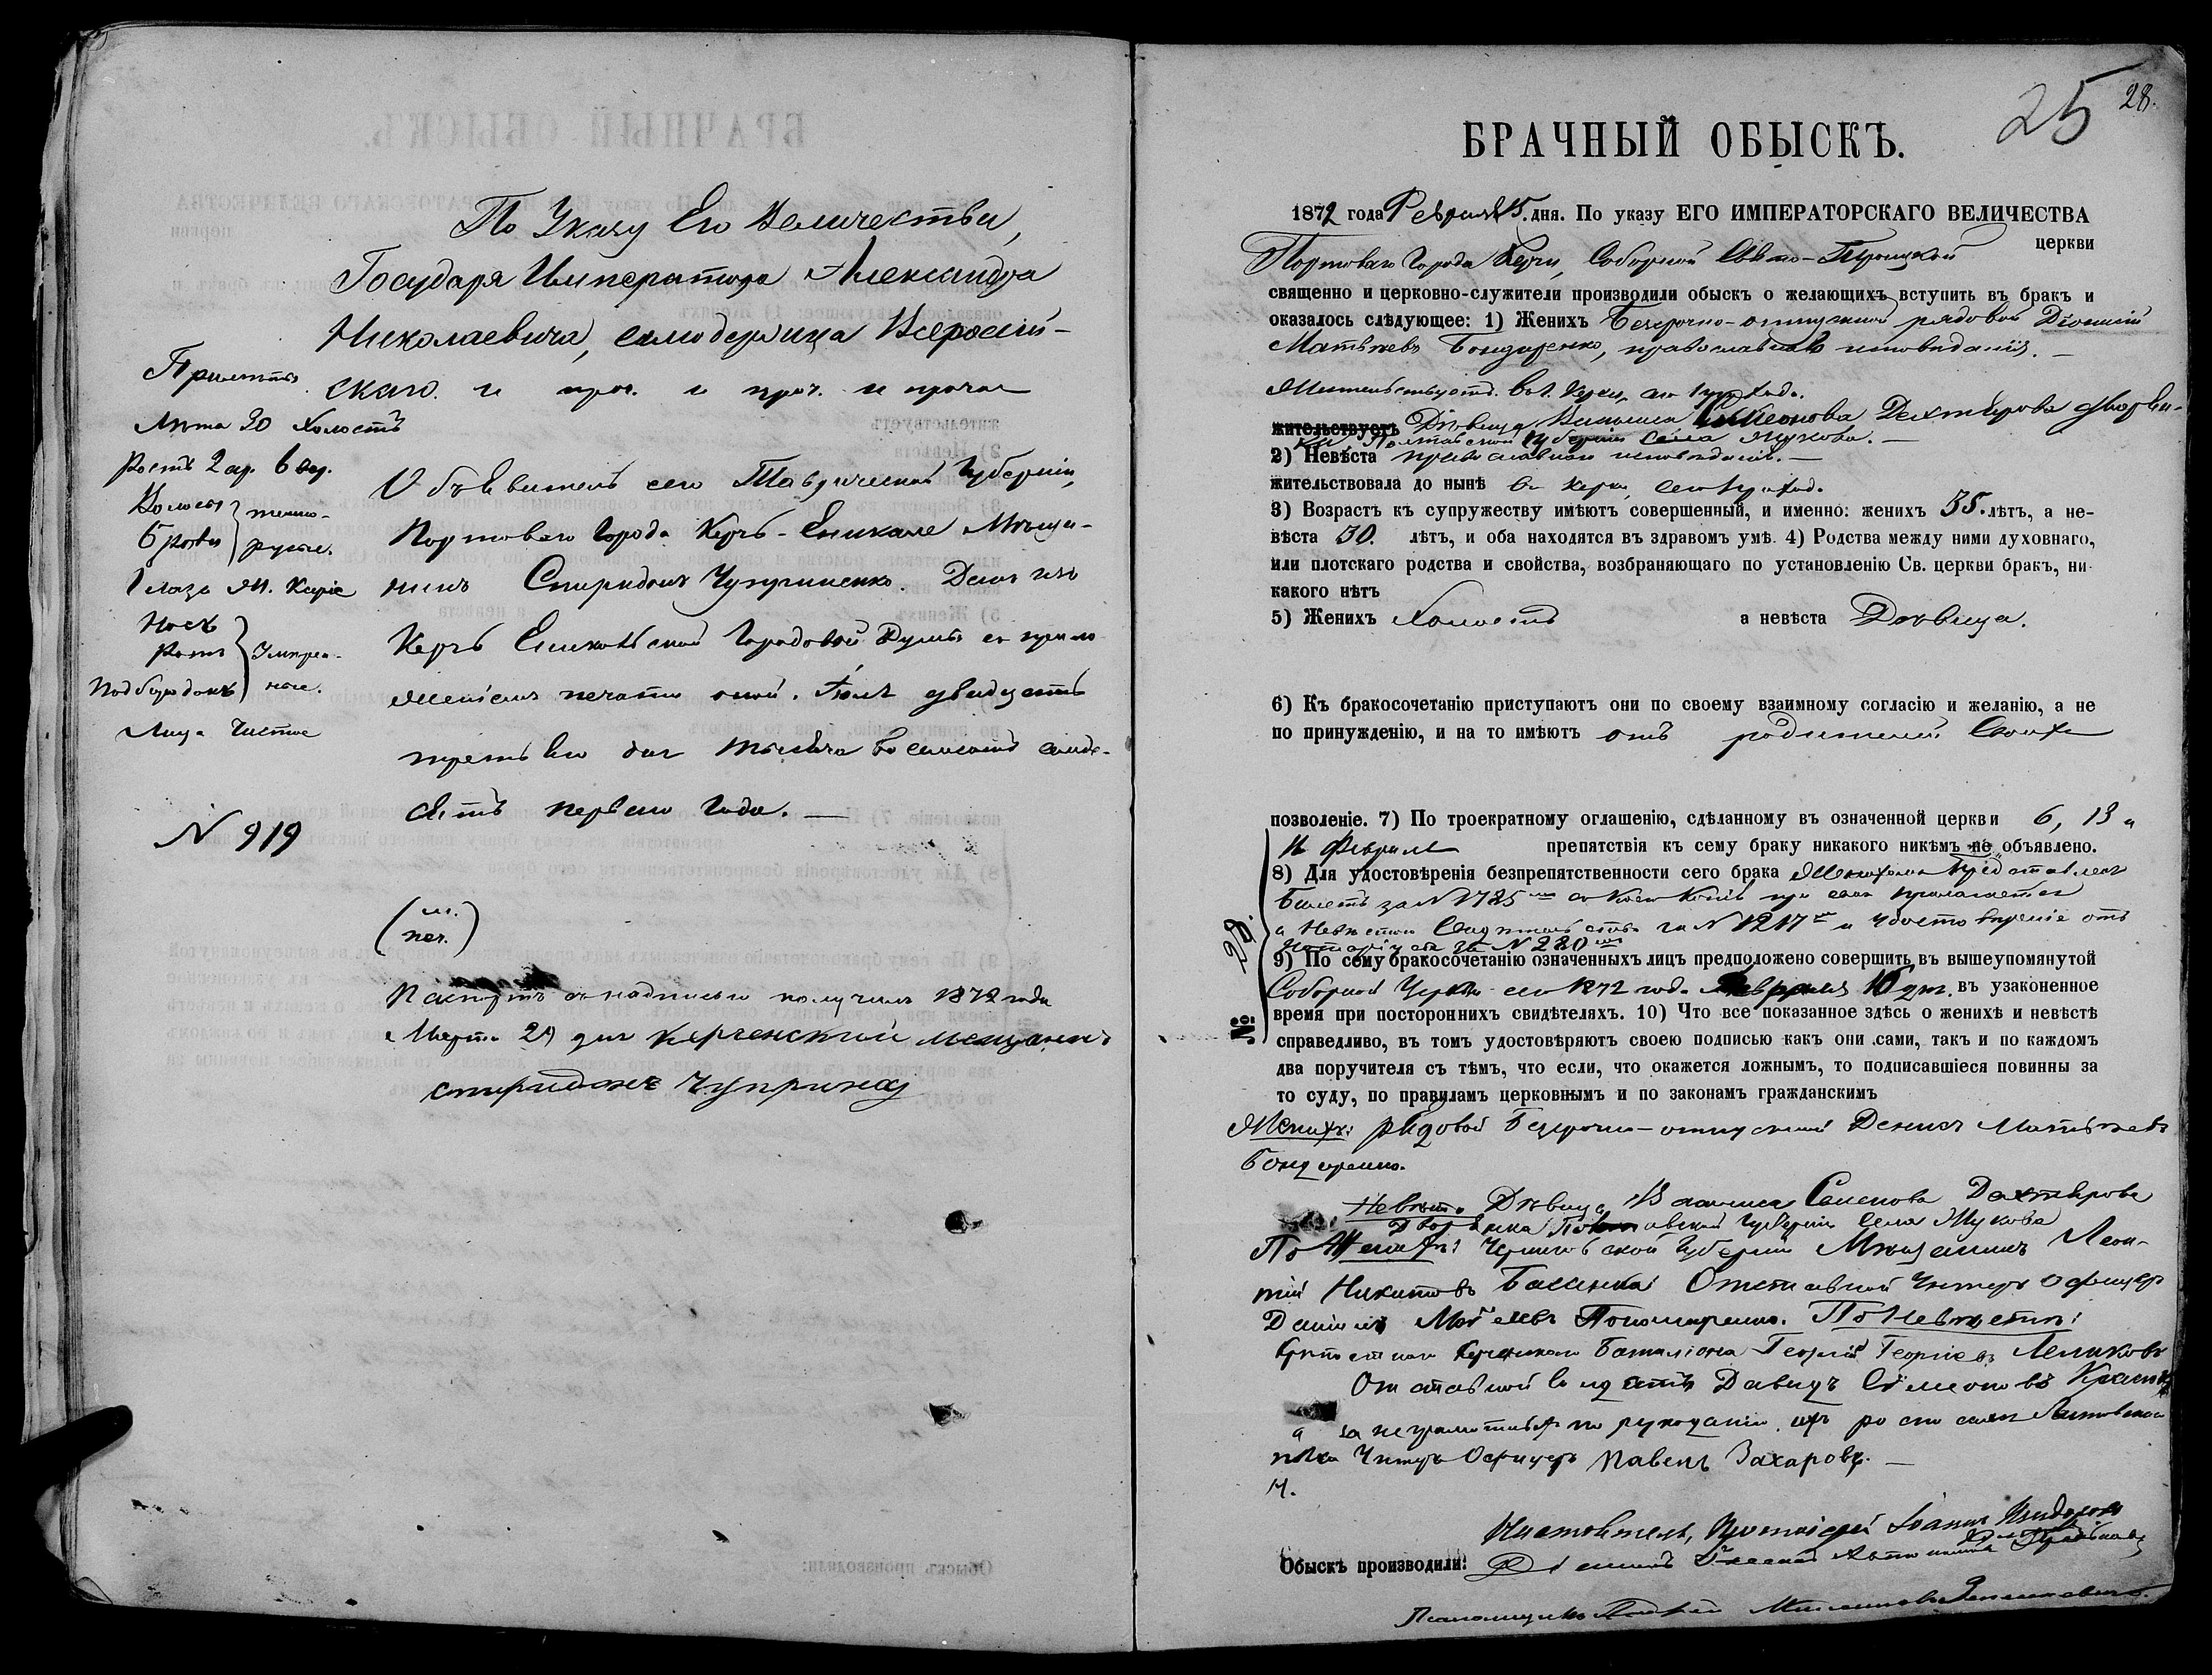 По Указу Его Величества,
Государя Императора Александра
Николаевича, самодержца Всероссій-
скаго. и проч. и проч. и прочая
Примѣты
Лѣта 30 Холостъ
Ростъ 2 ар. 6 вер.
Волосы
Брови
темно-
русые.
Глаза Каріе
Носъ
Ротъ
Подбородокъ
Умѣрен-
ные.
Лице Чистое
№ 919
Объявитель сего Таврической Губерніи,
Портоваго Города Керчь-Еникале Мѣща-
нинъ Спиридонъ Данъ изъ
Керчь Еникольской Городовой Думы съ прило
женіемъ печати оной. двадцать
третьяго дня тысяча восемьсотъ семьде-
сятъ перваго Года. —
(м.
печ.)
Паспортъ съ надписью получилъ 1872 года
Марта 29 дня Керченский мещанинъ
спиридонъ Чуприна
25 28.
БРАЧНЫЙ ОБЫСКЪ.
1872 года Февраля 15. дня. По указу ЕГО ИМПЕРАТОРСКАГО ВЕЛИЧЕСТВА
Портоваго Города Керчи, Соборной Свято-Троицкой церкви
священно и церковно-служители производили обыскъ о желающихъ вступить въ бракъ и
оказалось слѣдующее: 1) Женихъ Безсрочно-отпускной рядовой Діонисій
Матвѣевъ Бондаренко, православнаго исповѣданія. —
Жительствуетъ въ г. Керчи, сего прихода.
жительствуетъ Дѣвица Симеонова Дехтярова дворян-
ка Полтавской Губерніи Села Жукова. —
2) Невѣста православнаго исповѣданія. —
жительствовала до нынѣ въ Керчи, сего прихода.
3) Возрастъ къ супружеству имѣютъ совершенный, и именно: женихъ 35. лѣтъ, а не-
вѣста 30. лѣтъ, и оба находятся въ здравомъ умѣ. 4) Родства между ними духовнаго,
или плотскаго родства и свойства, возбраняющаго по установленію Св. церкви бракъ, ни-
какого нѣтъ
5) Женихъ Холостъ а невѣста Дѣвица.
6) Къ бракосочетанію приступаютъ они по своему взаимному согласію и желанію, а не
по принужденію, и на то имѣютъ отъ родителей Своихъ
позволеніе. 7) По троекратному оглашенію, сдѣланному въ означенной церкви 6, 13 и
Февраля препятствія къ сему браку никакого никѣмъ не объявлено.
8) Для удостовѣренія безпрепятственности сего брака Женихомъ представленъ
Билетъ за № 1785 съ коего копія при семъ прилагается
а Невѣстою Свидѣтельство за № 1217 и Удостовѣреніе отъ
Нотаріуса за № 280
9) По сему бракосочетанію означенныхъ лицъ предположено совершить въ вышеупомянутой
Соборной Церкви сего 1872 года Февраля дня. въ узаконенное
№ 28.
время при постороннихъ свидѣтеляхъ. 10) Что все показанное здѣсь о женихѣ и невѣстѣ
справедливо, въ томъ удостовѣряютъ своею подписью какъ они сами, такъ и по каждомъ
два поручителя съ тѣмъ, что если, что окажется ложнымъ, то подписавшіеся повинны за
то суду, по правиламъ церковнымъ и по законамъ гражданскимъ
Женихъ: рядовой Безсрочно-отпускной Денисъ Матвѣевъ
Бондаренко.
Невѣста Дѣвица Семенова Дехтярова
Дворянка Полтавской Губерніи Села Жукова
По Женихѣ: Черниговской Губерніи Мѣщанинъ Леон-
тій Никитовъ Отставной Унтеръ Офицеръ
Даніилъ Пономаренко. По Невѣстѣ:
Керченскаго Баталіона Георгій Георгіевъ
Отставной Солдатъ Давидъ Симеоновъ
а за неграмотныхъ по рукоданію ихъ росписался Литовскаго
полка Унтеръ Офицеръ Павелъ Захаровъ. —
Настоятель, Протоіерей Іоаннъ
Обыскъ производили:
Псаломщикъ